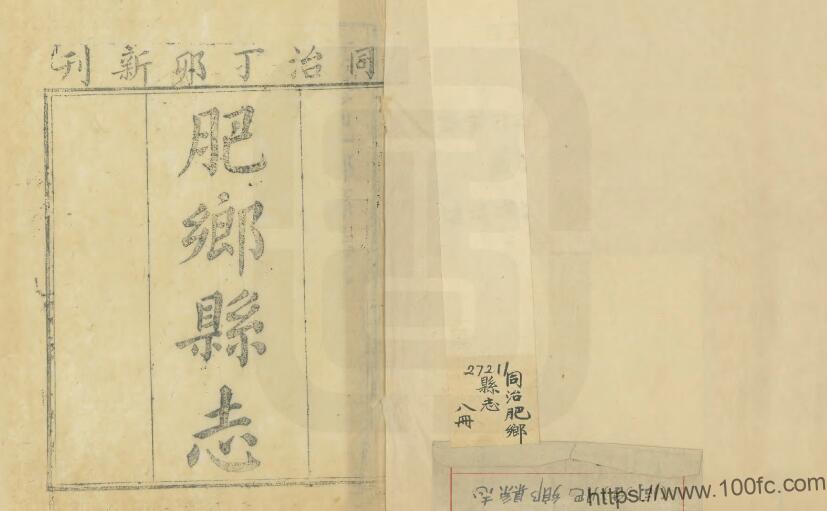 同治丁卯新刊
肥鄉縣志
同治肥鄉
縣志
八冊
27211
肥鄉縣志
https://www.100fc.com